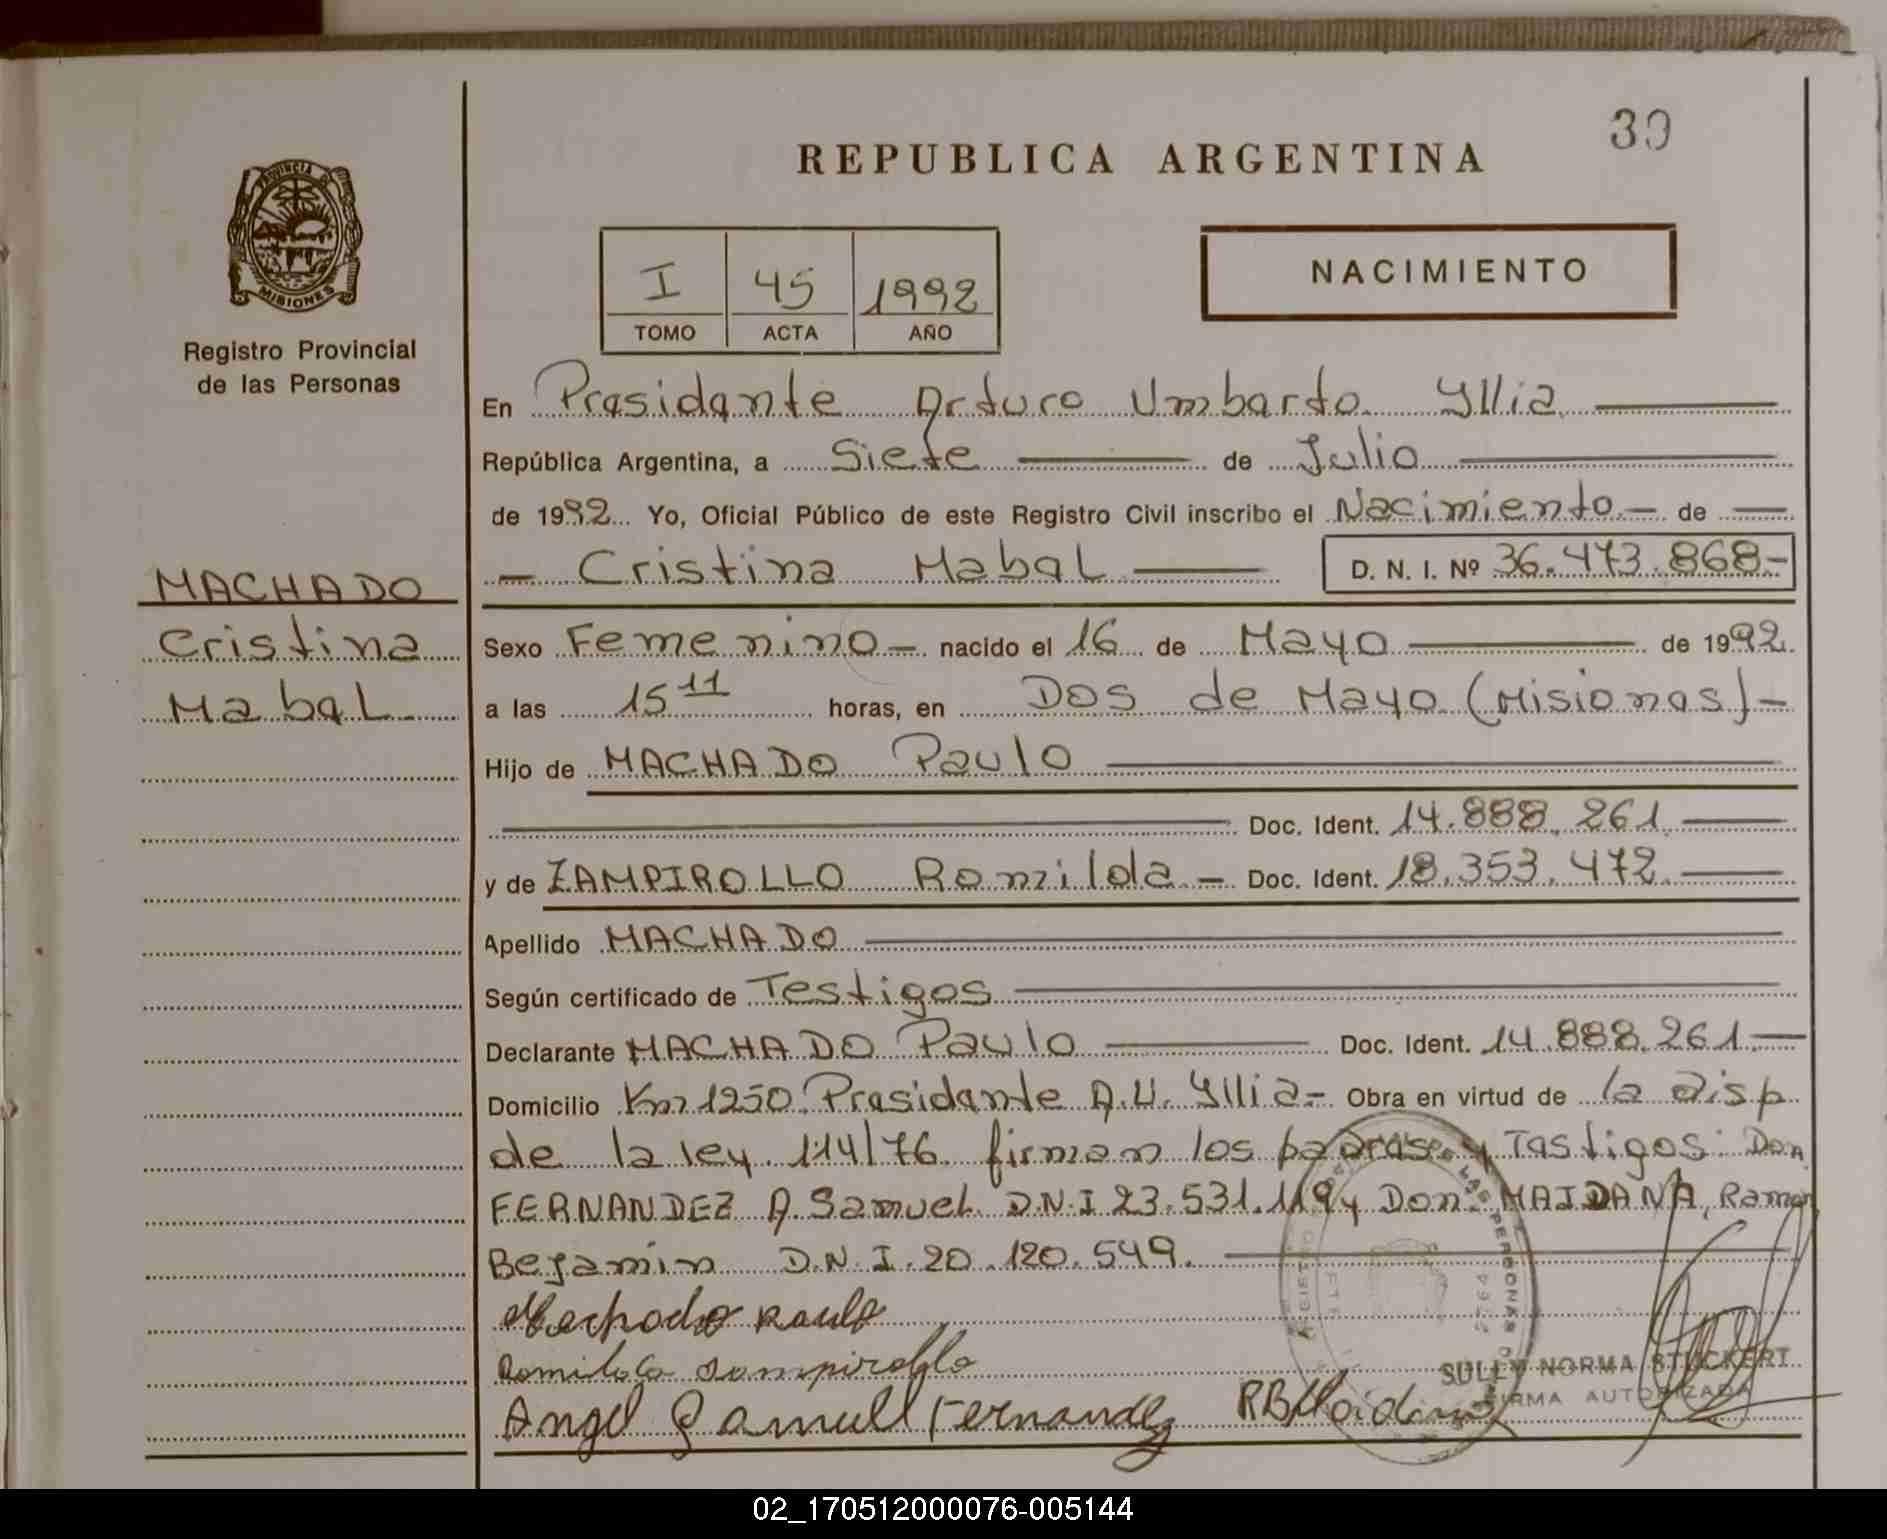 39
REPUBLICA ARGENTINA
PROVINCIA DE
MISIONES
Registro Provincial
de las Personas
I 45 1992
TOMO ACTA AÑO
NACIMIENTO
En Presidente Arturo Umberto Yllia
República Argentina, a Siete de Julio
de 1992 Yo, Oficial Público de este Registro Civil inscribo el Nacimiento - de -
- Cristina Mabel D. N. I. Nº 36.473.868-
MACHADO
Cristina
Mabel
Sexo Femenino - nacido el 16 de Mayo de 1992
a las 15 11 horas, en Dos de Mayo (Misiones) -
Hijo de MACHADO Paulo
Doc. Ident. 14.888.261
y de ZAMPIROLLO Romilda - Doc. Ident. 18.353.472
Apellido MACHADO
Según certificado de Testigos
Declarante MACHADO Paulo Doc. Ident. 14.888.261
Domicilio Km 1250 Presidente A.U. Yllia - Obra en virtud de la disp
de la ley 114/76 firman los padres y Testigos: Don
FERNANDEZ A. Samuel D.N.I 23.531.119 y Don MAIDANA, Ramon
Bejamin D.N.I. 20.120.549.
Machado Paulo
Romilda Sampirollo
SULLY NORMA STUCKERT
FIRMA AUTORIZADA
Angel Samuel Fernandez RBMaidana
02_170512000076-005144